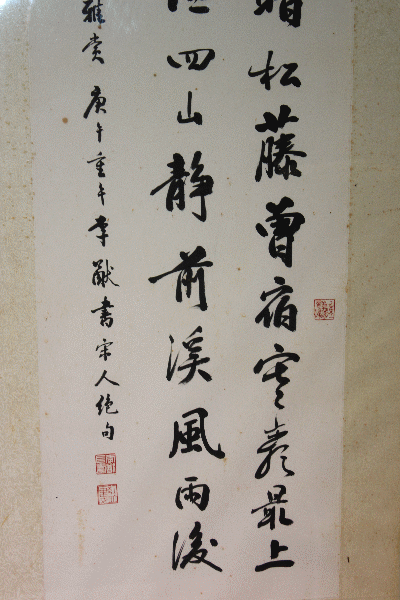 松藤曾宿寒最上
四山靜前溪風雨後
雅賏 庚午重午李猷書宋人絕句